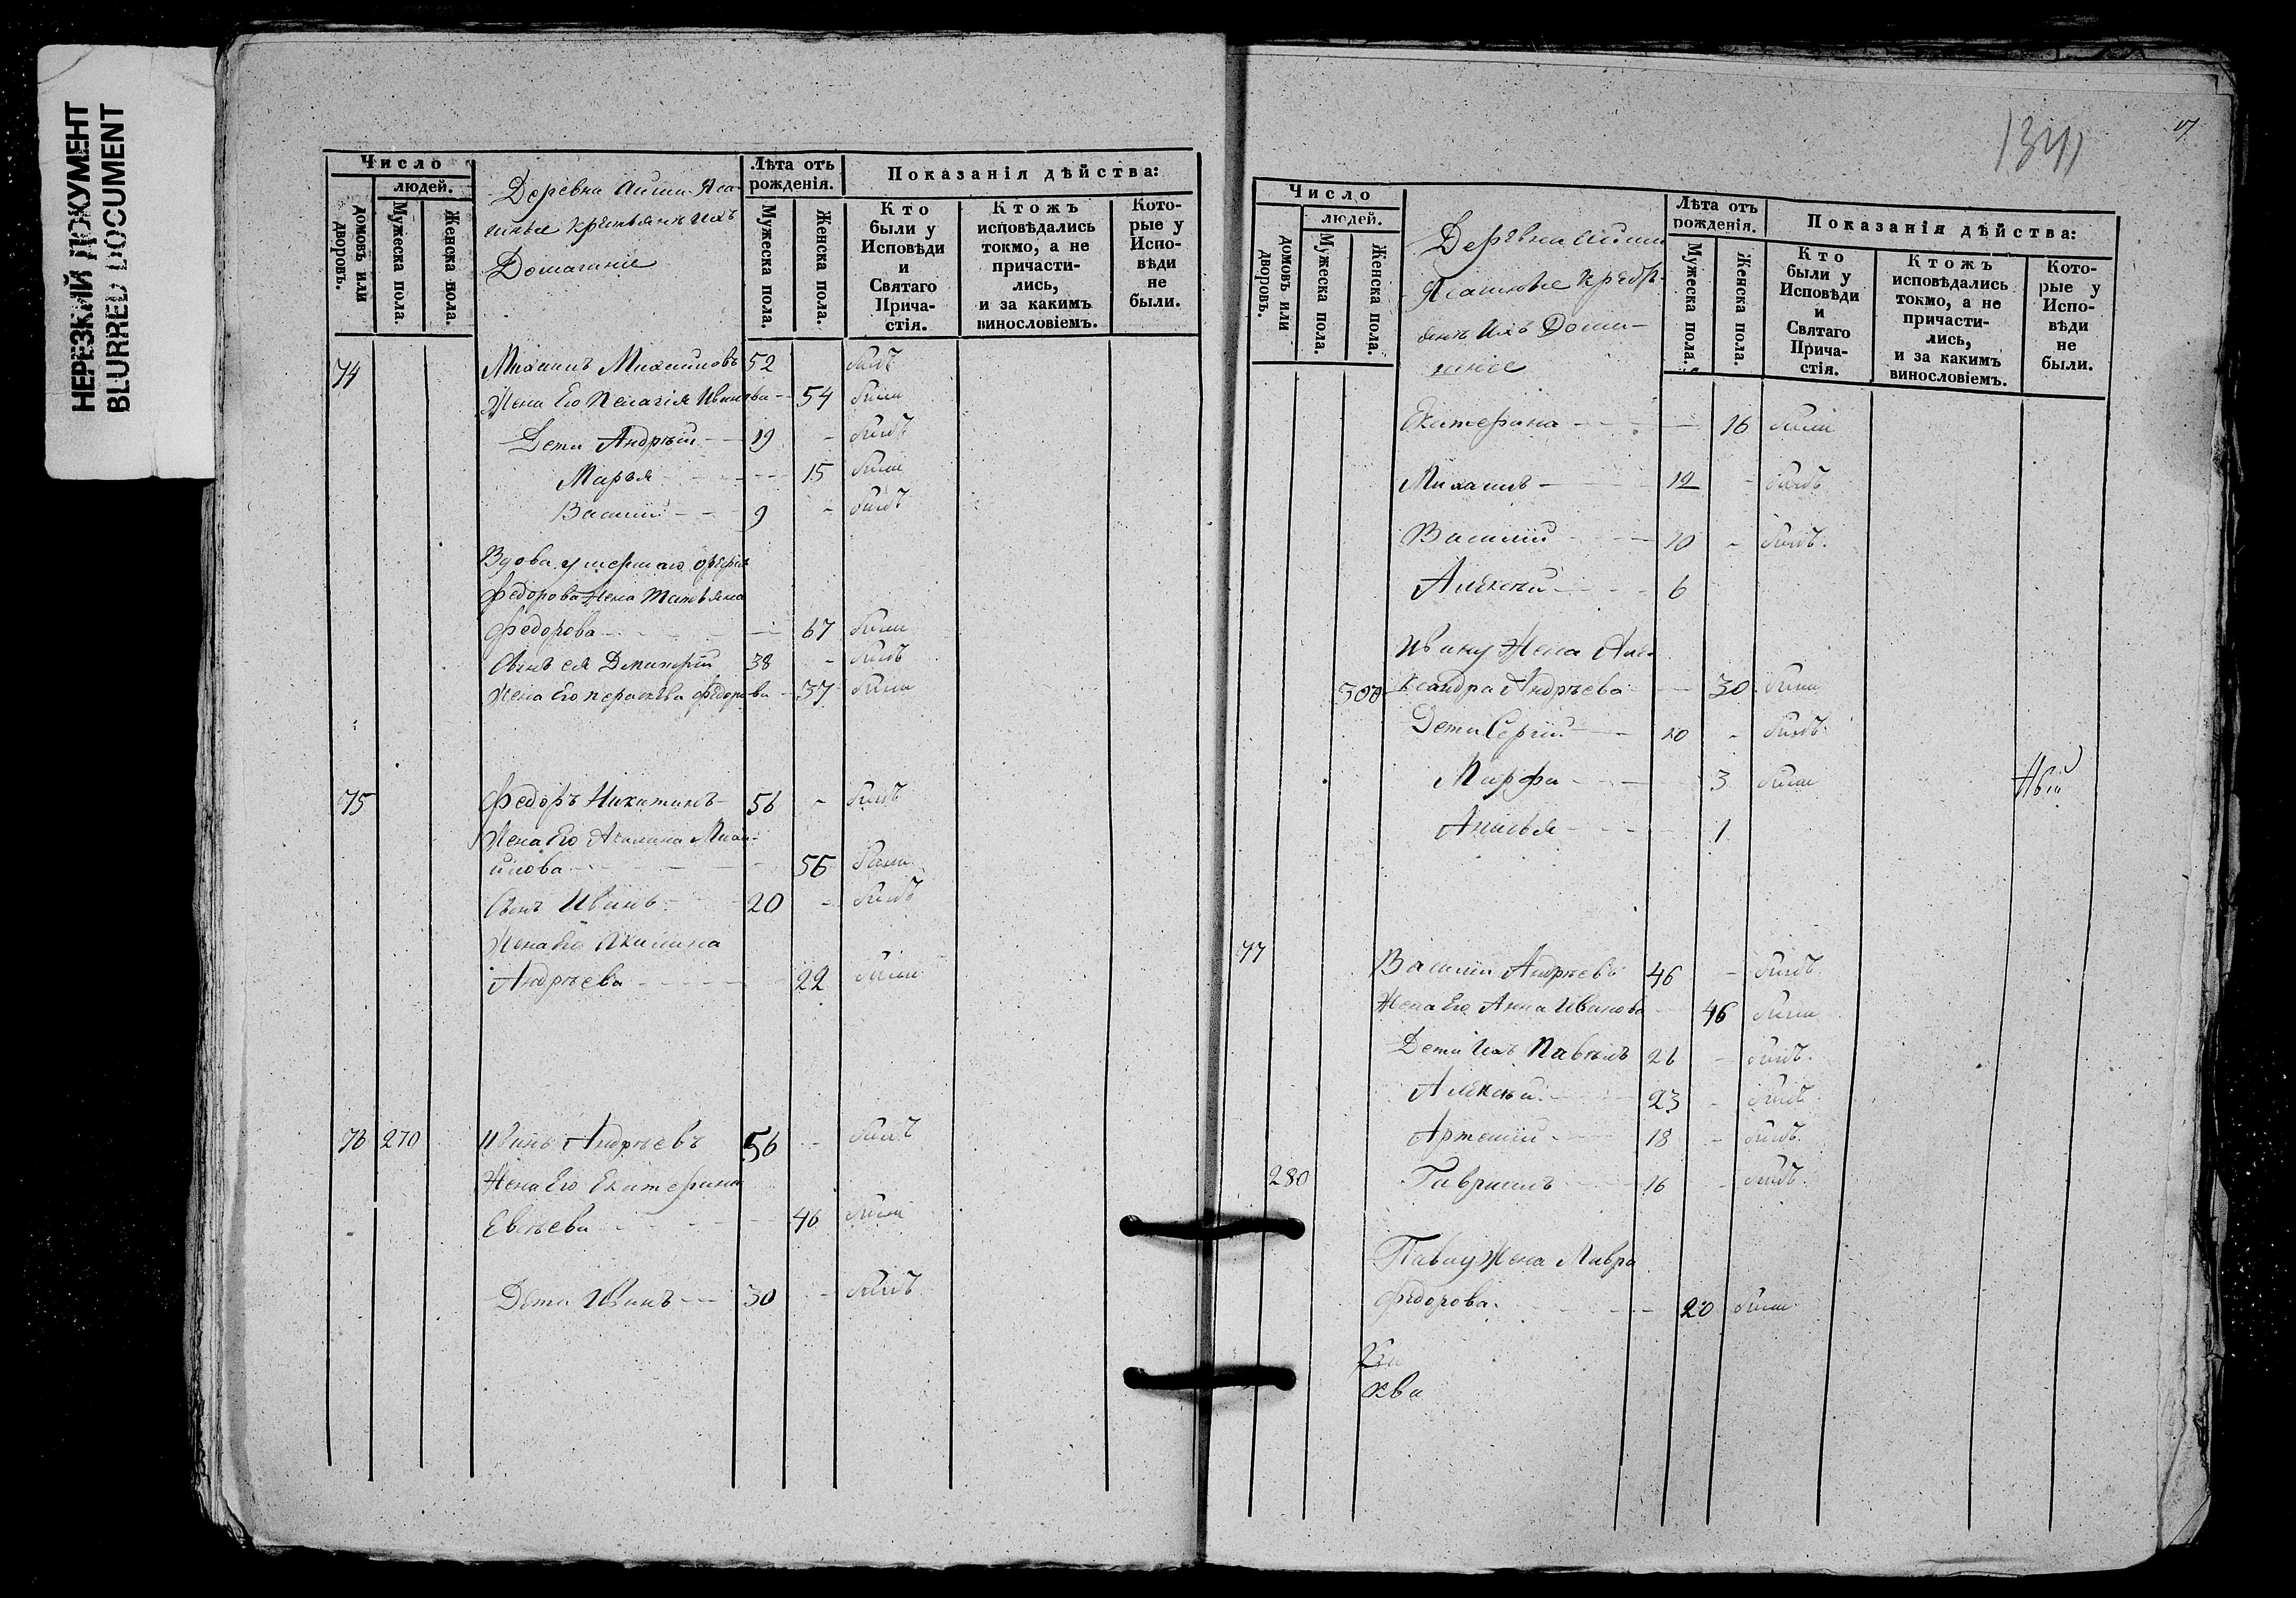 НЕРЕЗКИЙ ДОКУМЕНТ
BLURRED DOCUMENT
Число
людей.
домовъ или дворовъ.
Мужеска пола.
Женска пола.
Деревни Айши Яса-
шные крестьянъ ихъ
Домашние
Лѣта отъ рожденія.
Мужеска пола.
Женска пола.
Показанія дѣйства:
Кто были у Исповѣди и Святаго Причастія.
Ктожъ исповѣдались токмо, а не причастились, и за какимъ винословіемъ.
Которые у Исповѣди не были.
74 Михаилъ Михаиловъ 52 былъ
Жена Его Пелагія Иванова 54 была
Дети Андрѣй 19 былъ
Марья 15 была
Василій 9 былъ
Вдова умершаго
Федорова Жена Татьяна
Федорова 67 была
Сынъ ея Дмитрій 38 былъ
Жена Его Парасковья Федорова 37 была
75 Федоръ Никитинъ 56 былъ
Жена Его Акилина Миха-
йлова 56 была
Сынъ Иванъ 20 былъ
Жена Его Акилина
Андрѣева 22 была
76 270 Иванъ Андрѣевъ 56 былъ
Жена Его Екатерина
Евсѣева 46 была
Дети Иванъ 30 былъ
1341
Число
людей.
домовъ или дворовъ.
Мужеска пола.
Женска пола.
Деревни Айши
Ясашные Крестья-
янъ ихъ Дома-
шніе
Лѣта отъ рожденія.
Мужеска пола.
Женска пола.
Показанія дѣйства:
Кто были у Исповѣди и Святаго Причастія.
Ктожъ исповѣдались токмо, а не причастились, и за какимъ винословіемъ.
Которые у Исповѣди не были.
Екатерина 16 была
Михаилъ 12 былъ
Василій 10 былъ
Алексѣй 6
Ивану Жена Але-
300 ксандра Андрѣева 30 была
Дети Сергій 10 былъ
Марфа 3 была
Анисья 1
77 Василій Андрѣевъ 46 былъ
Жена Его Анна Иванова 46 была
Дети Ихъ Павелъ 26 былъ
Алексѣй 23 былъ
Артемій 18 былъ
280 Гавриилъ 16 былъ
Павлу Жена Мавра
Федорова 20 была